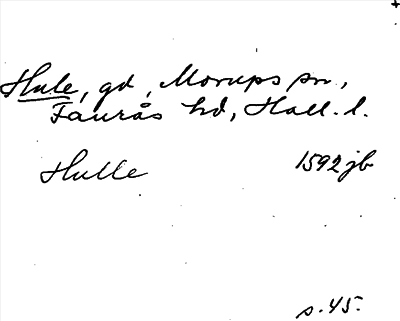 Hule, gd, Morups sn,
Faurås hd, Hall. l.
Hulle 1592 jb
s. 45.